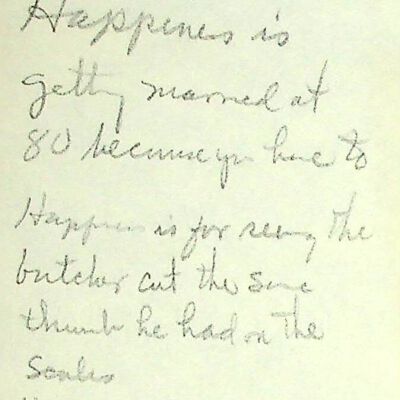 Happeness is
getting married at
80 because you have to
Happeness is for seeing the
butcher cut the same
thumb he had on the
Scales